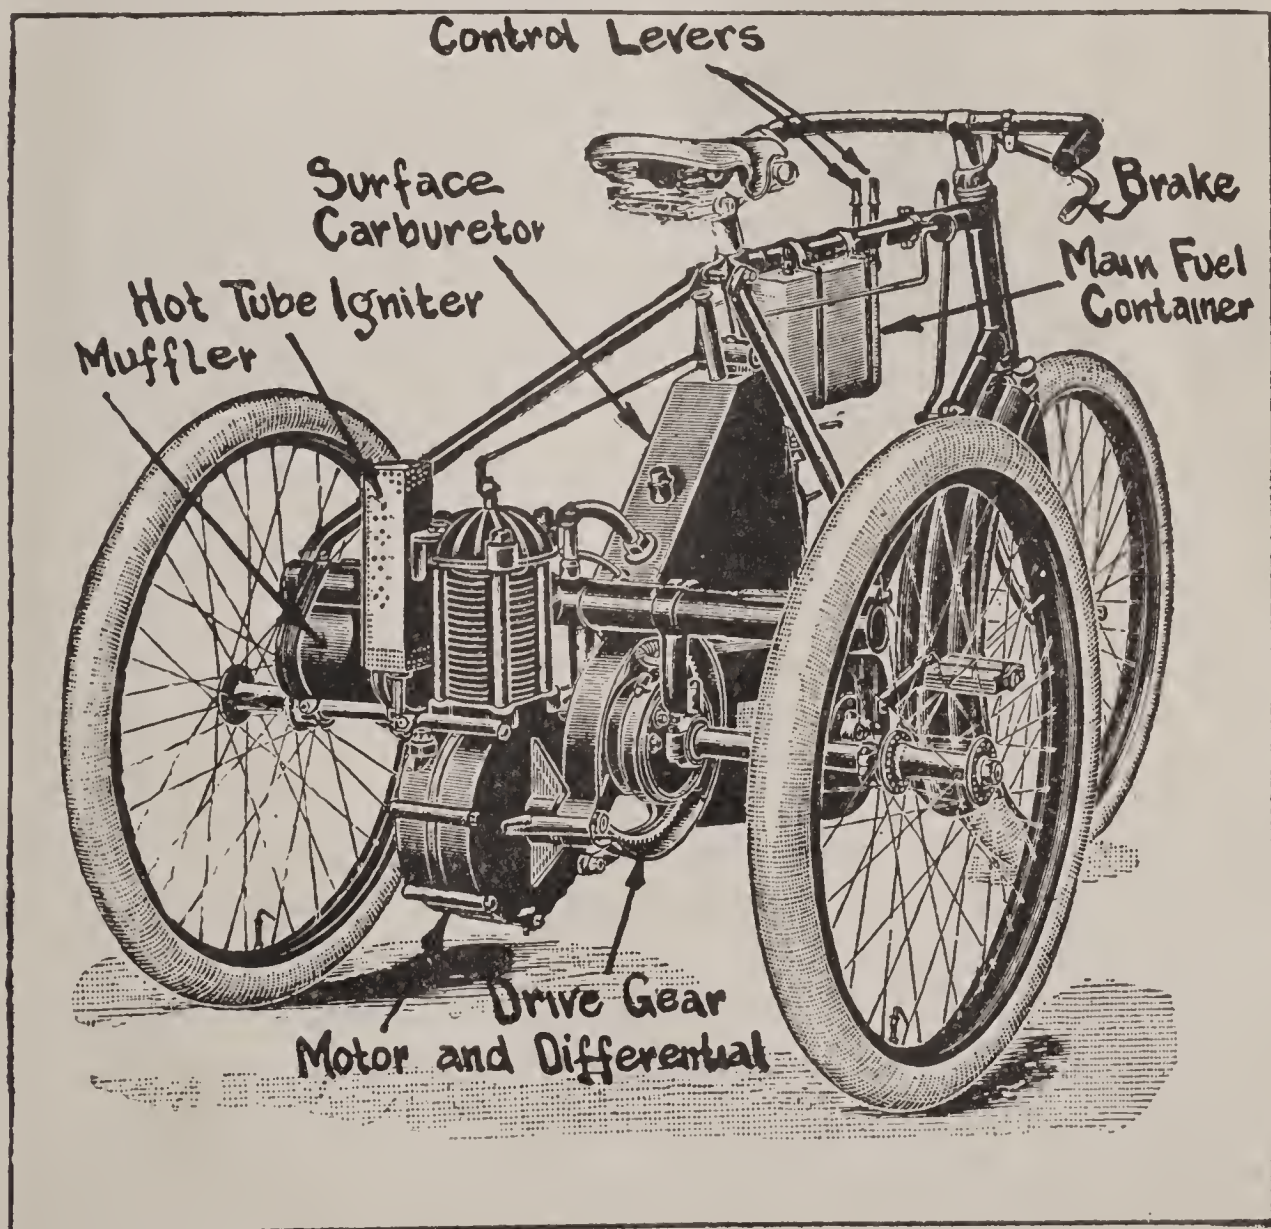 Control Levers
Surface
Carburetor
Brake
Main Fuel
Container
Hot Tube Igniter
Muffler
Drive Gear
Motor and Differential